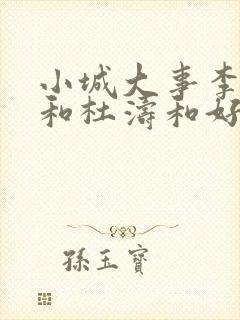 小城大事李
和杜濤和好
孫玉寶